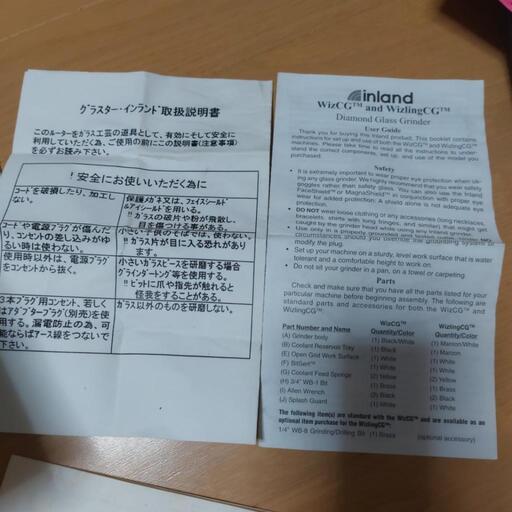 グラスター・インランド取扱説明書
このルーターをガラス工芸の道具として、有効にそして安全に
利用していただく為、ご使用の前にこの説明書(注意事項)
を必ずお読み下さい。
！安全にお使いいただく為に
コードを破損したり、加工し
ない。
コードや電源プラグが傷んだ
り、コンセントの差し込みがゆ
るい時は使わない。
使用時以外は、電源プラグ
をコンセントから抜く。
3本プラグ用コンセント、若しく
はアダプタープラグ(別売)を使
用する。漏電防止の為、可
能ならばアース線をつないで
下さい。
保護メガネ又は、フェイスシールド
&アイシールドを用いる。
!! ガラスの破片や粉が飛散し、
目を傷つける事がある。
小さい子供のそばでは、使わない。
!! ガラス片が目に入る恐れがあり
ます。
小さいガラスピースを研磨する場合
グラインダートング等を使用する。
!! ビットに爪や指先が触れると
怪我をすることがある。
ガラス以外のものを研磨しない。
inland
WizCG™ and WizlingCG™
Diamond Glass Grinder
User Guide
Thank you for buying this Inland product. This booklet contains
instructions for set up and use of both the WizCG™ and WizlingCG™
machines. Please take time to read all the instructions to under-
stand the correct components, set up, and use of the model you
purchased.
Safety
• It is extremely important to wear proper eye protection when us-
ing any glass grinder. We highly recommend that you wear safety
goggles rather than safety glass. You can also use the Inland
FaceShield™ or MagnaShield™ in conjunction with proper eye
protection. A shield alone is not adequate eye
• DO NOT wear loose clothing or any accessories (long necklaces,
bracelets, shirts with long fringes, and similar) that might get
caught by the grinder head while using any
• Use only in a properly
circumstances should you override the grounding system or
modify the plug.
• Set up your machine on a sturdy, level work surface that is water
tolerant and a comfortable height to work on.
• Do not set your grinder in a pan, on a towel or carpeting.
Parts
Check and make sure that you have all the parts listed for your
particular machine before beginning assembly. The following are
standard parts and accessories for both the WizCG™ and
WizlingCG™.
Part Number and Name WizCG™ Quantity/Color WizlingCG™ Quantity/Color
(A) Grinder body (1) Black/White (1) Maroon/White
(B) Coolant Reservoir Tray (1) Black (1) Maroon
(E) Open Grid Work Surface (1) White (1) White
(F) BitGert™ (1) White (1) White
(G) Coolant Feed Sponge (2) Yellow (2) Yellow
(H) 3/4" WB-1 Bit (1) Brass (1) Brass
(I) Allen Wrench (2) Black (2) Black
(J) Splash Guard (1) White (1) White
The following item(s) are standard with the WizCG™ and are available as an
optional item purchase for the WizlingCG™:
1/4" WB-8 Grinding/Drilling Bit (1) Brass (optional accessory)